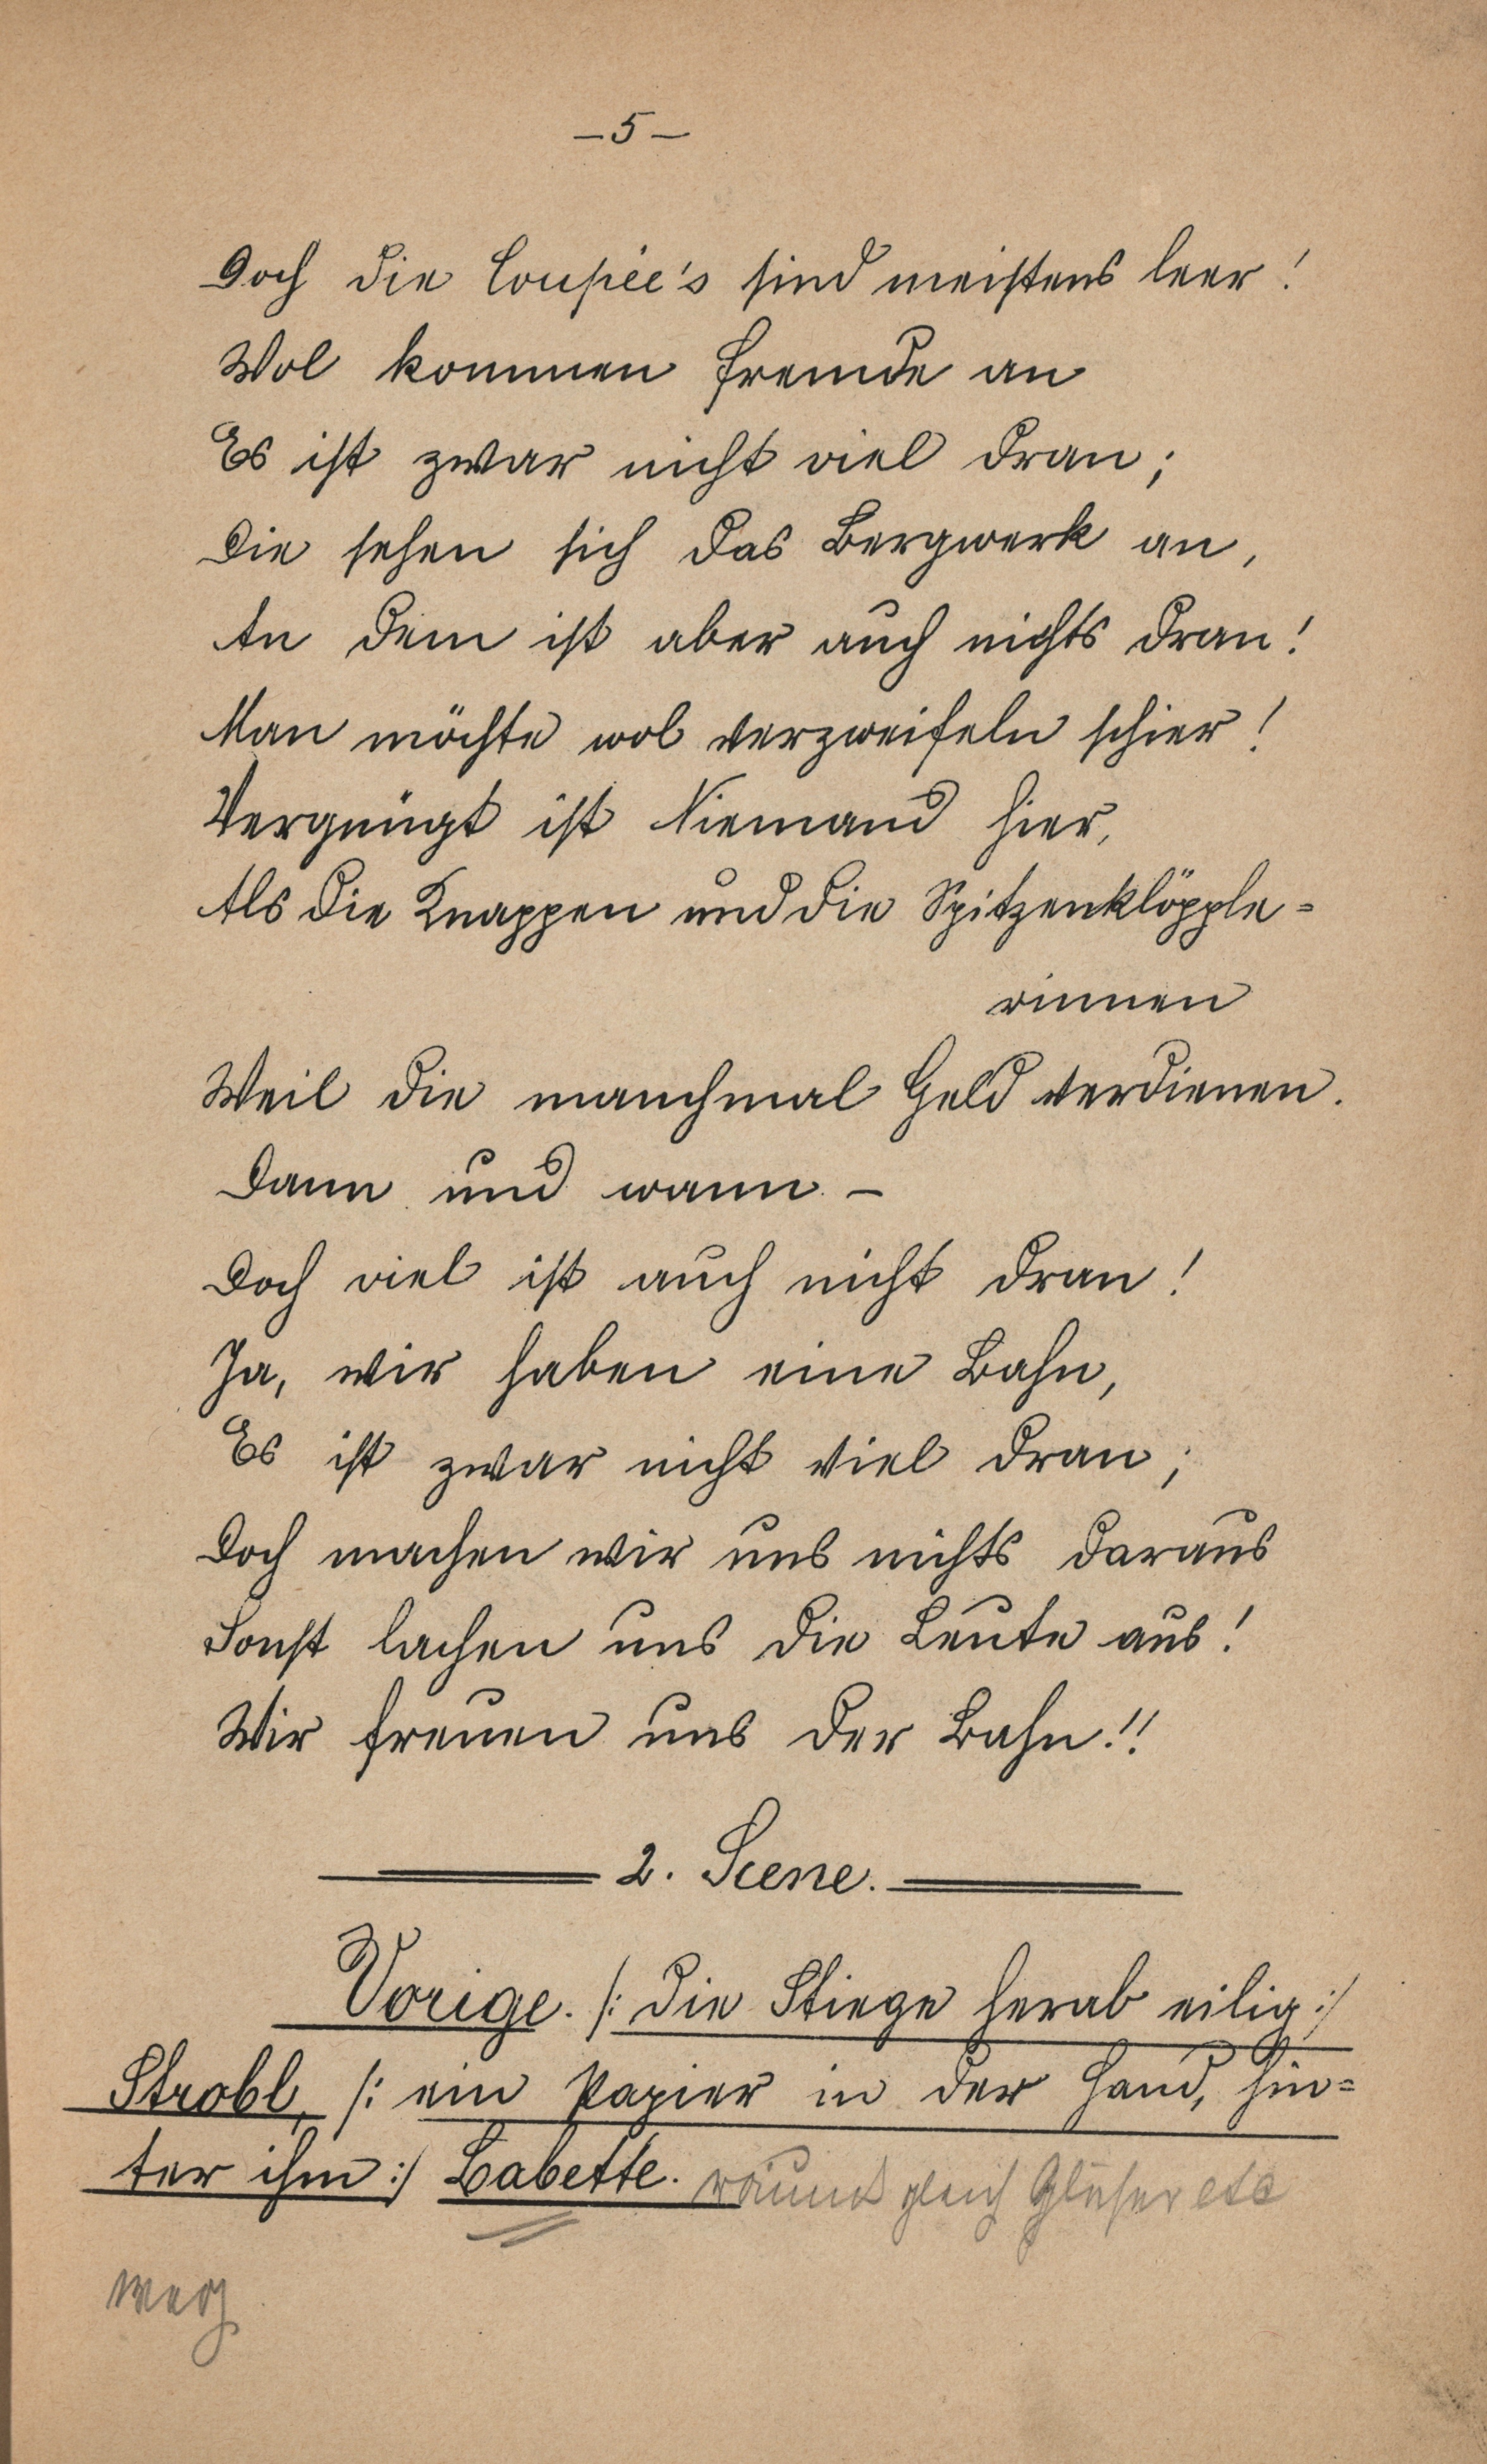 – 5 –
Doch die Coupée's sind meistens leer!
Wol kommen Fremde an
Es ist zwar nicht viel dran;
Die sehen sich das Bergwerk an,
An dem ist aber auch nichts dran!
Man möchte wol verzweifeln schier!
Vergnügt ist Niemand hier,
Als die Knappen und die Spitzenklöpple=
rinnen
Weil die manchmal Geld verdienen.
Dann und wann. –
Doch viel ist auch nicht dran!
Ja, wir haben eine Bahn,
Es ist zwar nicht viel dran;
Doch machen wir uns nichts daraus
Sonst lachen uns die Leute aus!
Wir freuen uns der Bahn!!
2. Scene.
Vorige. /: die Stiege herab eilig :/
Strobl, /: ein Papier in der Hand, hin=
ter ihm :/ Babette. räumt gleich Gläser etc
weg